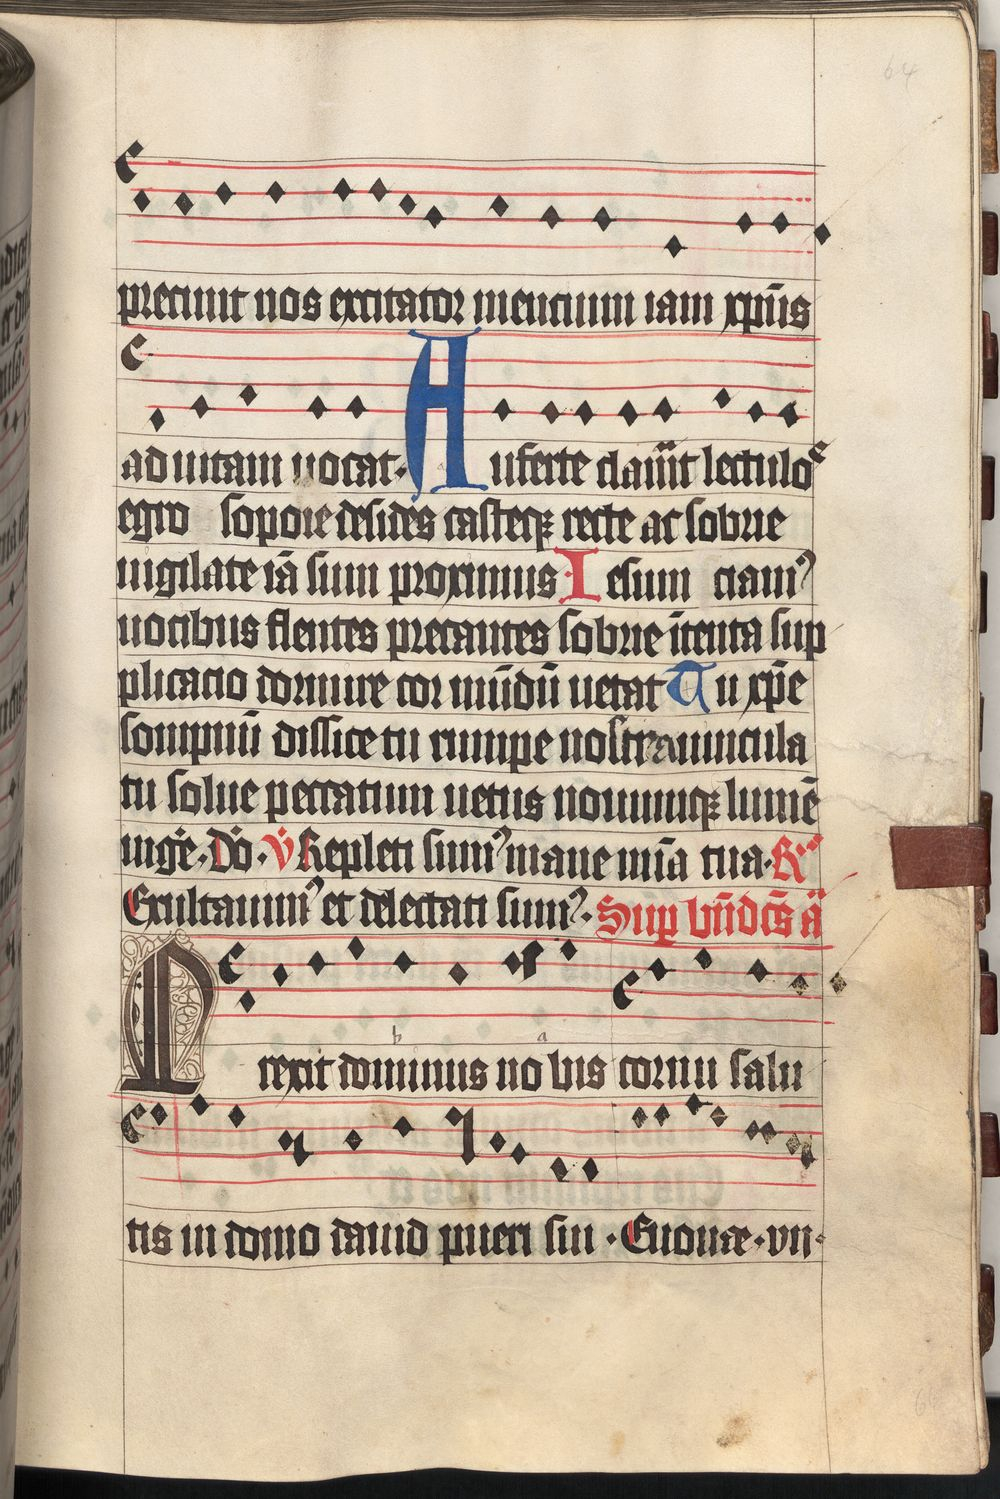 64
precinit nos excitator mencium iam xp̄us
ad uitam uocat· Auferte clamīt lectulos
egro sopore desides casteqꝫ recte ac sobrie
uigilate iā sum proximus Iesum ciamꝰ
uocibus flentes precantes sobrie ītenta sup
plicacio dormire cor mūdū uetat Tu xp̄e
sompnū dissice tu rumpe nostra uincula
tu solue peccatum uetus nouumqꝫ lumē
īgẽ· Dō· ℣ Repleti sumꝰ mane mīa tua· ℟
Exultauimꝰ et delectati sumꝰ· Sup bn̄dcs̄ ā
Erexit dominus nobis cornu salu
tis in domo dauid pueri sui · Euouae · vii·